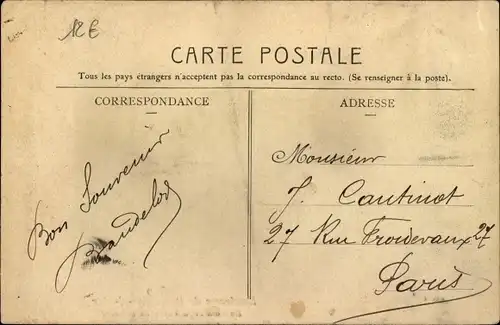 12E
CARTE POSTALE
Tous les pays étrangers n'acceptent pas la correspondance au recto. (Se renseigner à la poste).
CORRESPONDANCE
ADRESSE
Bon Souvenir
Baudelot
Monsieur
J. Cautinot
27 Rue Froidevaux 27
Paris